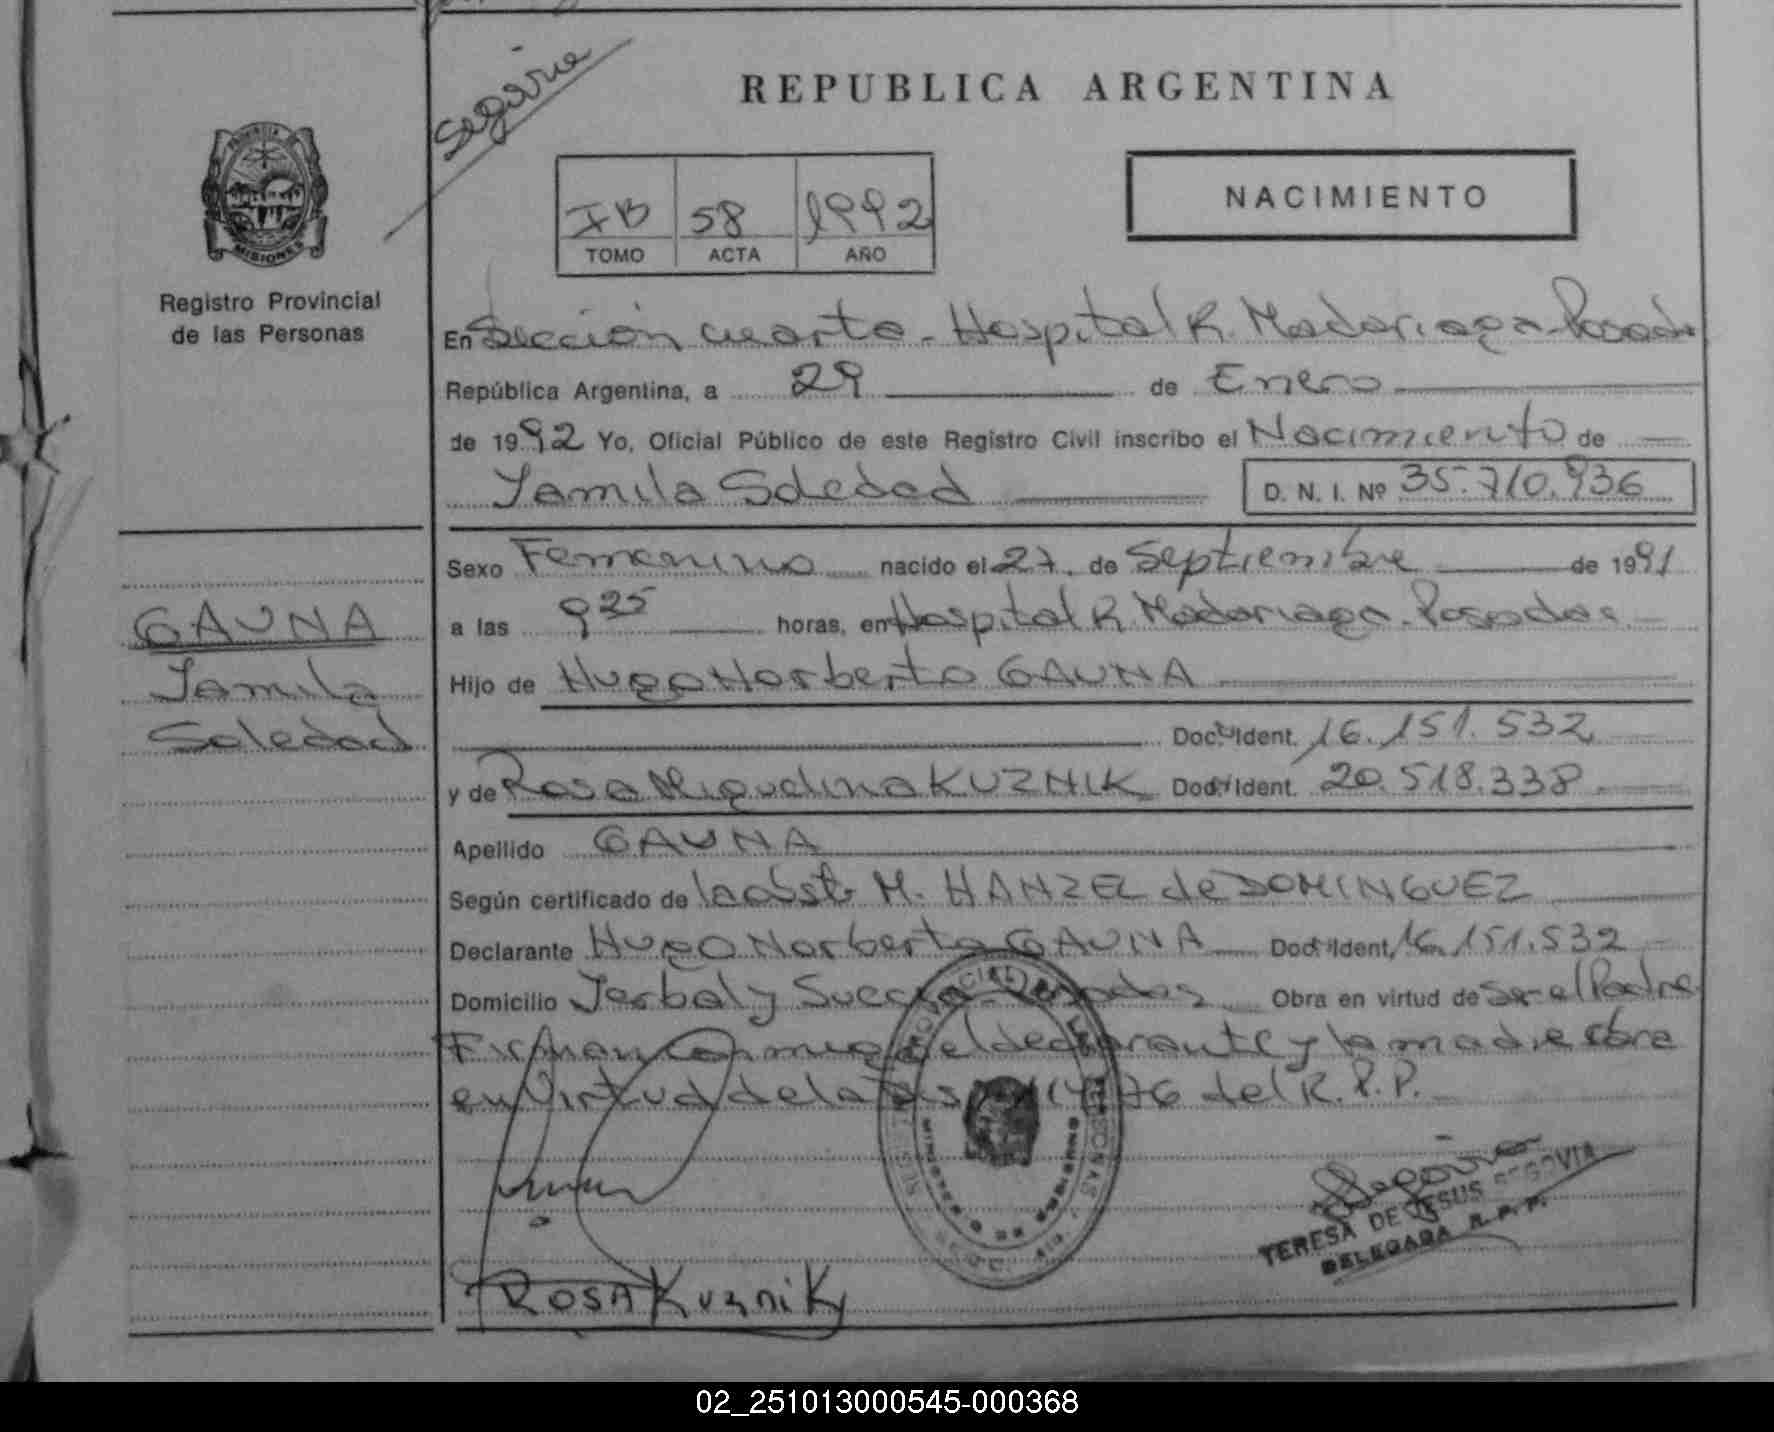 Segovia
REPUBLICA ARGENTINA
PROVINCIA
MISIONES
Registro Provincial
de las Personas
IB 58 1992
TOMO ACTA AÑO
NACIMIENTO
En Sección cuarta - Hospital R. Madariaga - Posadas
República Argentina, a 29 de Enero
de 1992 Yo, Oficial Público de este Registro Civil inscribo el Nacimiento de
Yamila Soledad D. N. I. Nº 35.710.936
Sexo Femenino nacido el 27 de Septiembre de 1991
a las 9 25 horas, en Hospital R. Madariaga - Posadas
Hijo de Hugo Norberto GAUNA
Doc. Ident. 16.151.532
y de Rosa Miguelina KUZNIK Doc. Ident. 20.518.338
Apellido GAUNA
Según certificado de la obst. M. HANZEL de DOMINGUEZ
Declarante Hugo Norberto GAUNA Doc. Ident. 16.151.532
Domicilio Yerbal y Sucre - Posadas Obra en virtud de Ser el Padre
Firman conmigo el declarante y la madre obra
en virtud de la 76 del R.P.P.
GAUNA
Yamila
Soledad
Segovia
TERESA DE JESUS SEGOVIA
DELEGADA R.P.P.
ROSA Kuznik
02_251013000545-000368